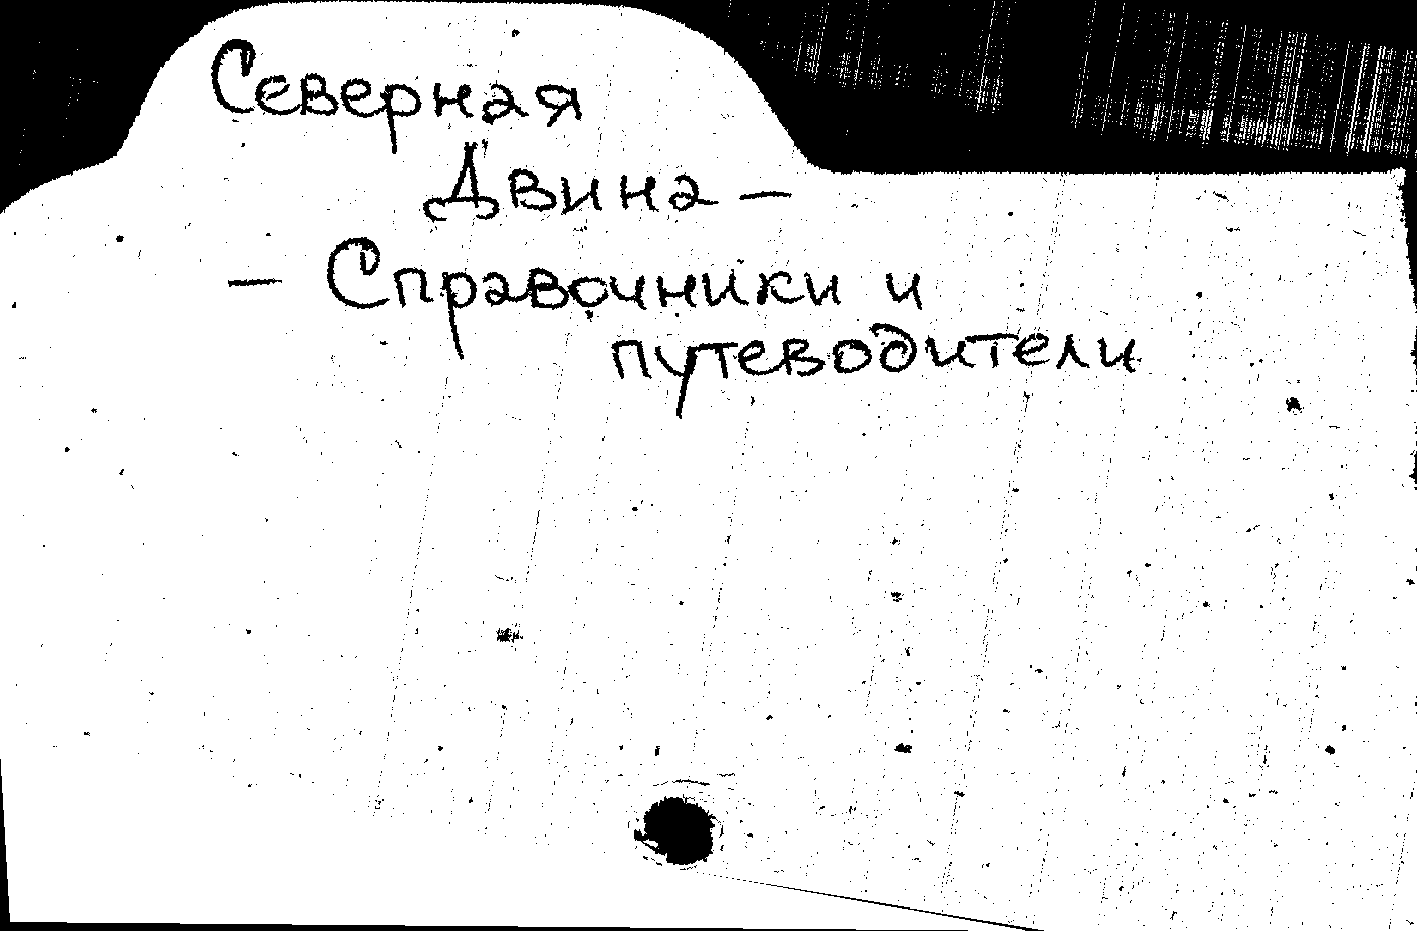 Северная
Двина –
– Справочники и
путеводители